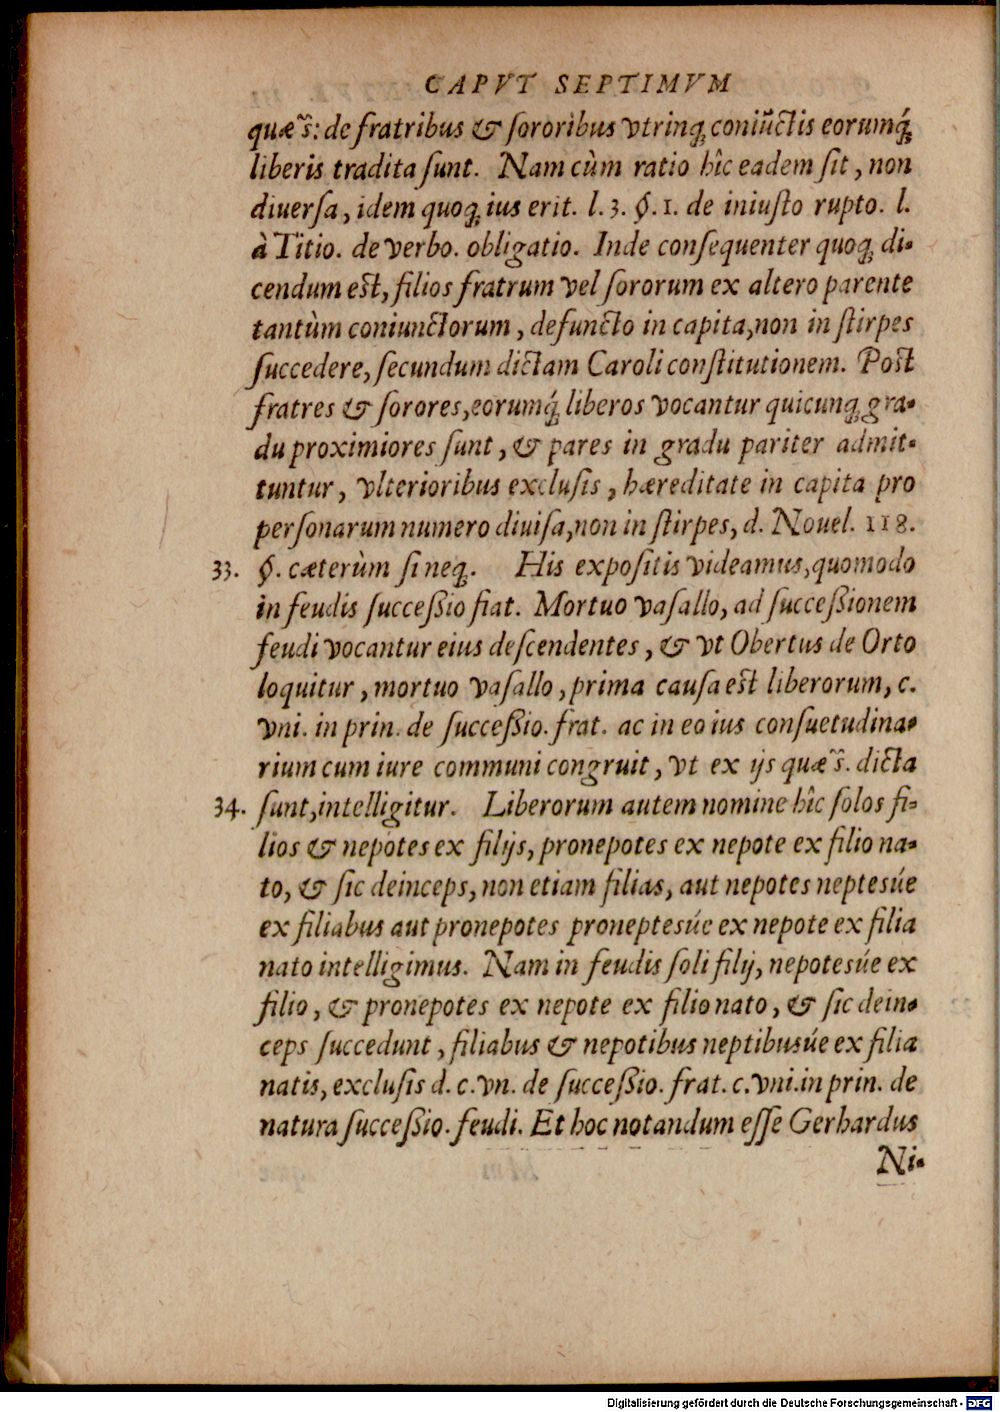 CAPVT SEPTIMVM
quæ s̃: de fratribus & ſororibus vtrinq; coniũctis eorumq́;
liberis tradita ſunt. Nam cùm ratio hîc eadem ſit, non
diuerſa, idem quoq; ius erit. l. 3. §. 1. de iniuſto rupto. l.
à Titio. de verbo. obligatio. Inde conſequenter quoq; di-
cendum eſt, filios fratrum vel ſororum ex altero parente
tantùm coniunctorum, defuncto in capita, non in ſtirpes
ſuccedere, ſecundum dictam Caroli conſtitutionem. Poſt
fratres & ſorores, eorumq́; liberos vocantur quicunq; gra-
du proximiores ſunt, & pares in gradu pariter admit-
tuntur, vlterioribus excluſis, hæreditate in capita pro
perſonarum numero diuiſa, non in ſtirpes, d. Nouel. 118.
33. §. cæterùm ſi neq;. His expoſitis videamus, quomodo
in feudis ſucceßio fiat. Mortuo vaſallo, ad ſucceßionem
feudi vocantur eius deſcendentes, & vt Obertus de Orto
loquitur, mortuo vaſallo, prima cauſa eſt liberorum, c.
vni. in prin. de ſucceßio. frat. ac in eo ius conſuetudina-
rium cum iure communi congruit, vt ex ijs quæ s̃. dicta
34. ſunt, intelligitur. Liberorum autem nomine hîc ſolos fi-
lios & nepotes ex filijs, pronepotes ex nepote ex filio na-
to, & ſic deinceps, non etiam filias, aut nepotes neptesúe
ex filiabus aut pronepotes proneptesúe ex nepote ex filia
nato intelligimus. Nam in feudis ſoli filij, nepotesúe ex
filio, & pronepotes ex nepote ex filio nato, & ſic dein-
ceps ſuccedunt, filiabus & nepotibus neptibusúe ex filia
natis, excluſis d. c. vn. de ſucceßio. frat. c. vni. in prin. de
natura ſucceßio. feudi. Et hoc notandum eſſe Gerhardus
Ni-
Digitalisierung gefördert durch die Deutsche Forschungsgemeinschaft - DFG